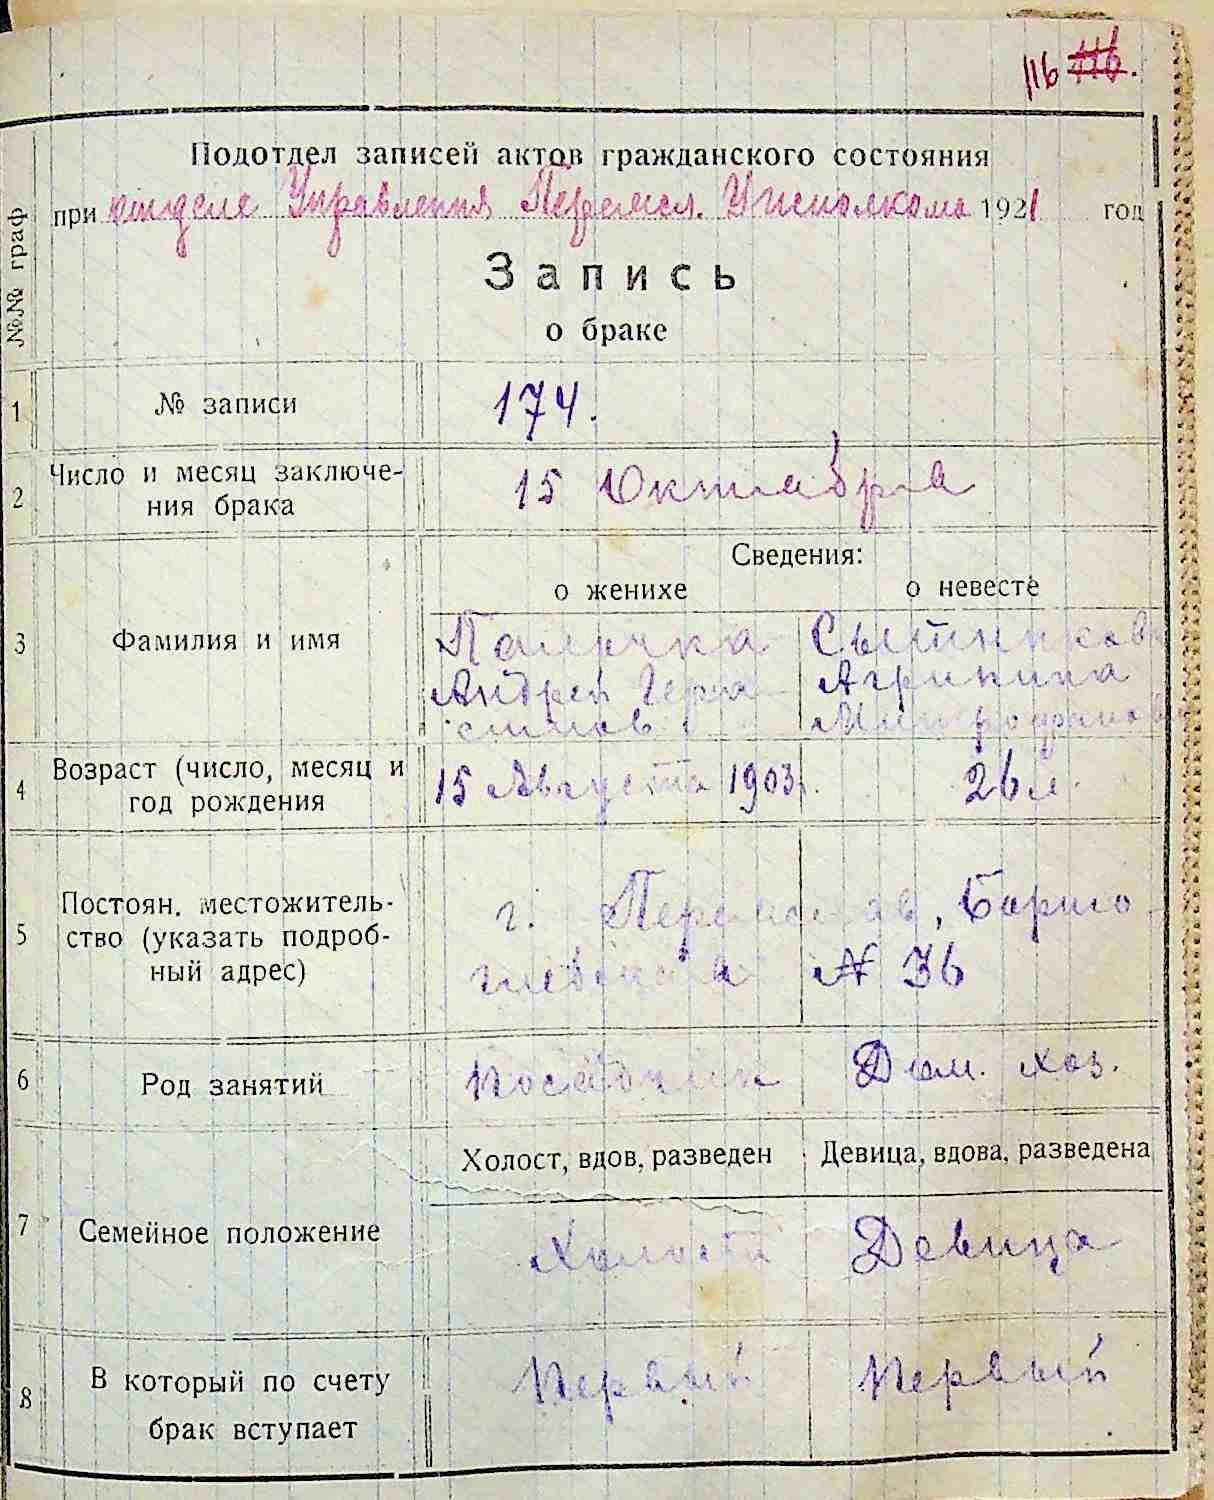 116 116.
Подотдел записей актов гражданского состояния
при отделе Управления Перемсл. Уисполкома 1921 год
№№ граф
Запись
о браке
1 № записи 174.
2 Число и месяц заключе-
ния брака 15 Октября
Сведения:
о женихе о невесте
3 Фамилия и имя
Палочка Сытникова
Андрей Гера Агрипина
симов Митрофанов
4 Возраст (число, месяц и
год рождения 15 Августа 1903 26 л.
5 Постоян. местожитель-
ство (указать подроб-
ный адрес)
г. Переяслав,
№ 36
6 Род занятий Посадчик Дом. хоз.
Холост, вдов, разведен Девица, вдова, разведена
7 Семейное положение Холост Девица
8 В который по счету
брак вступает Первый Первый